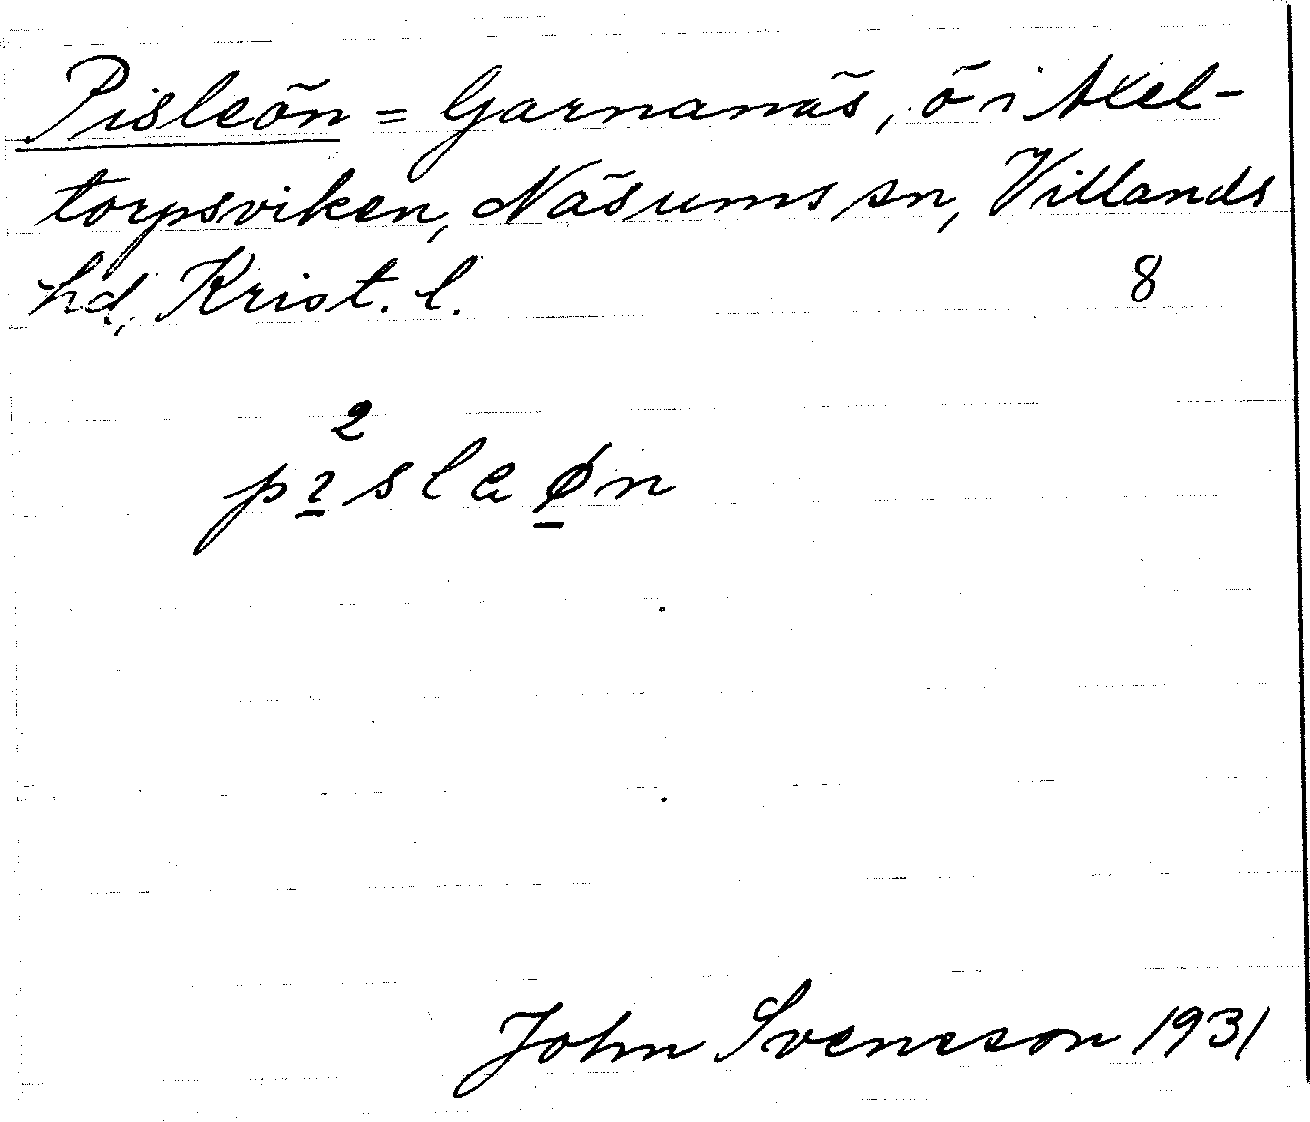 Pisleön = Garnanäs, ö i Axel-
torpsviken, Näsums sn, Villands
hd, Krist. l. 8
2
pısleøn
John Svensson 1931